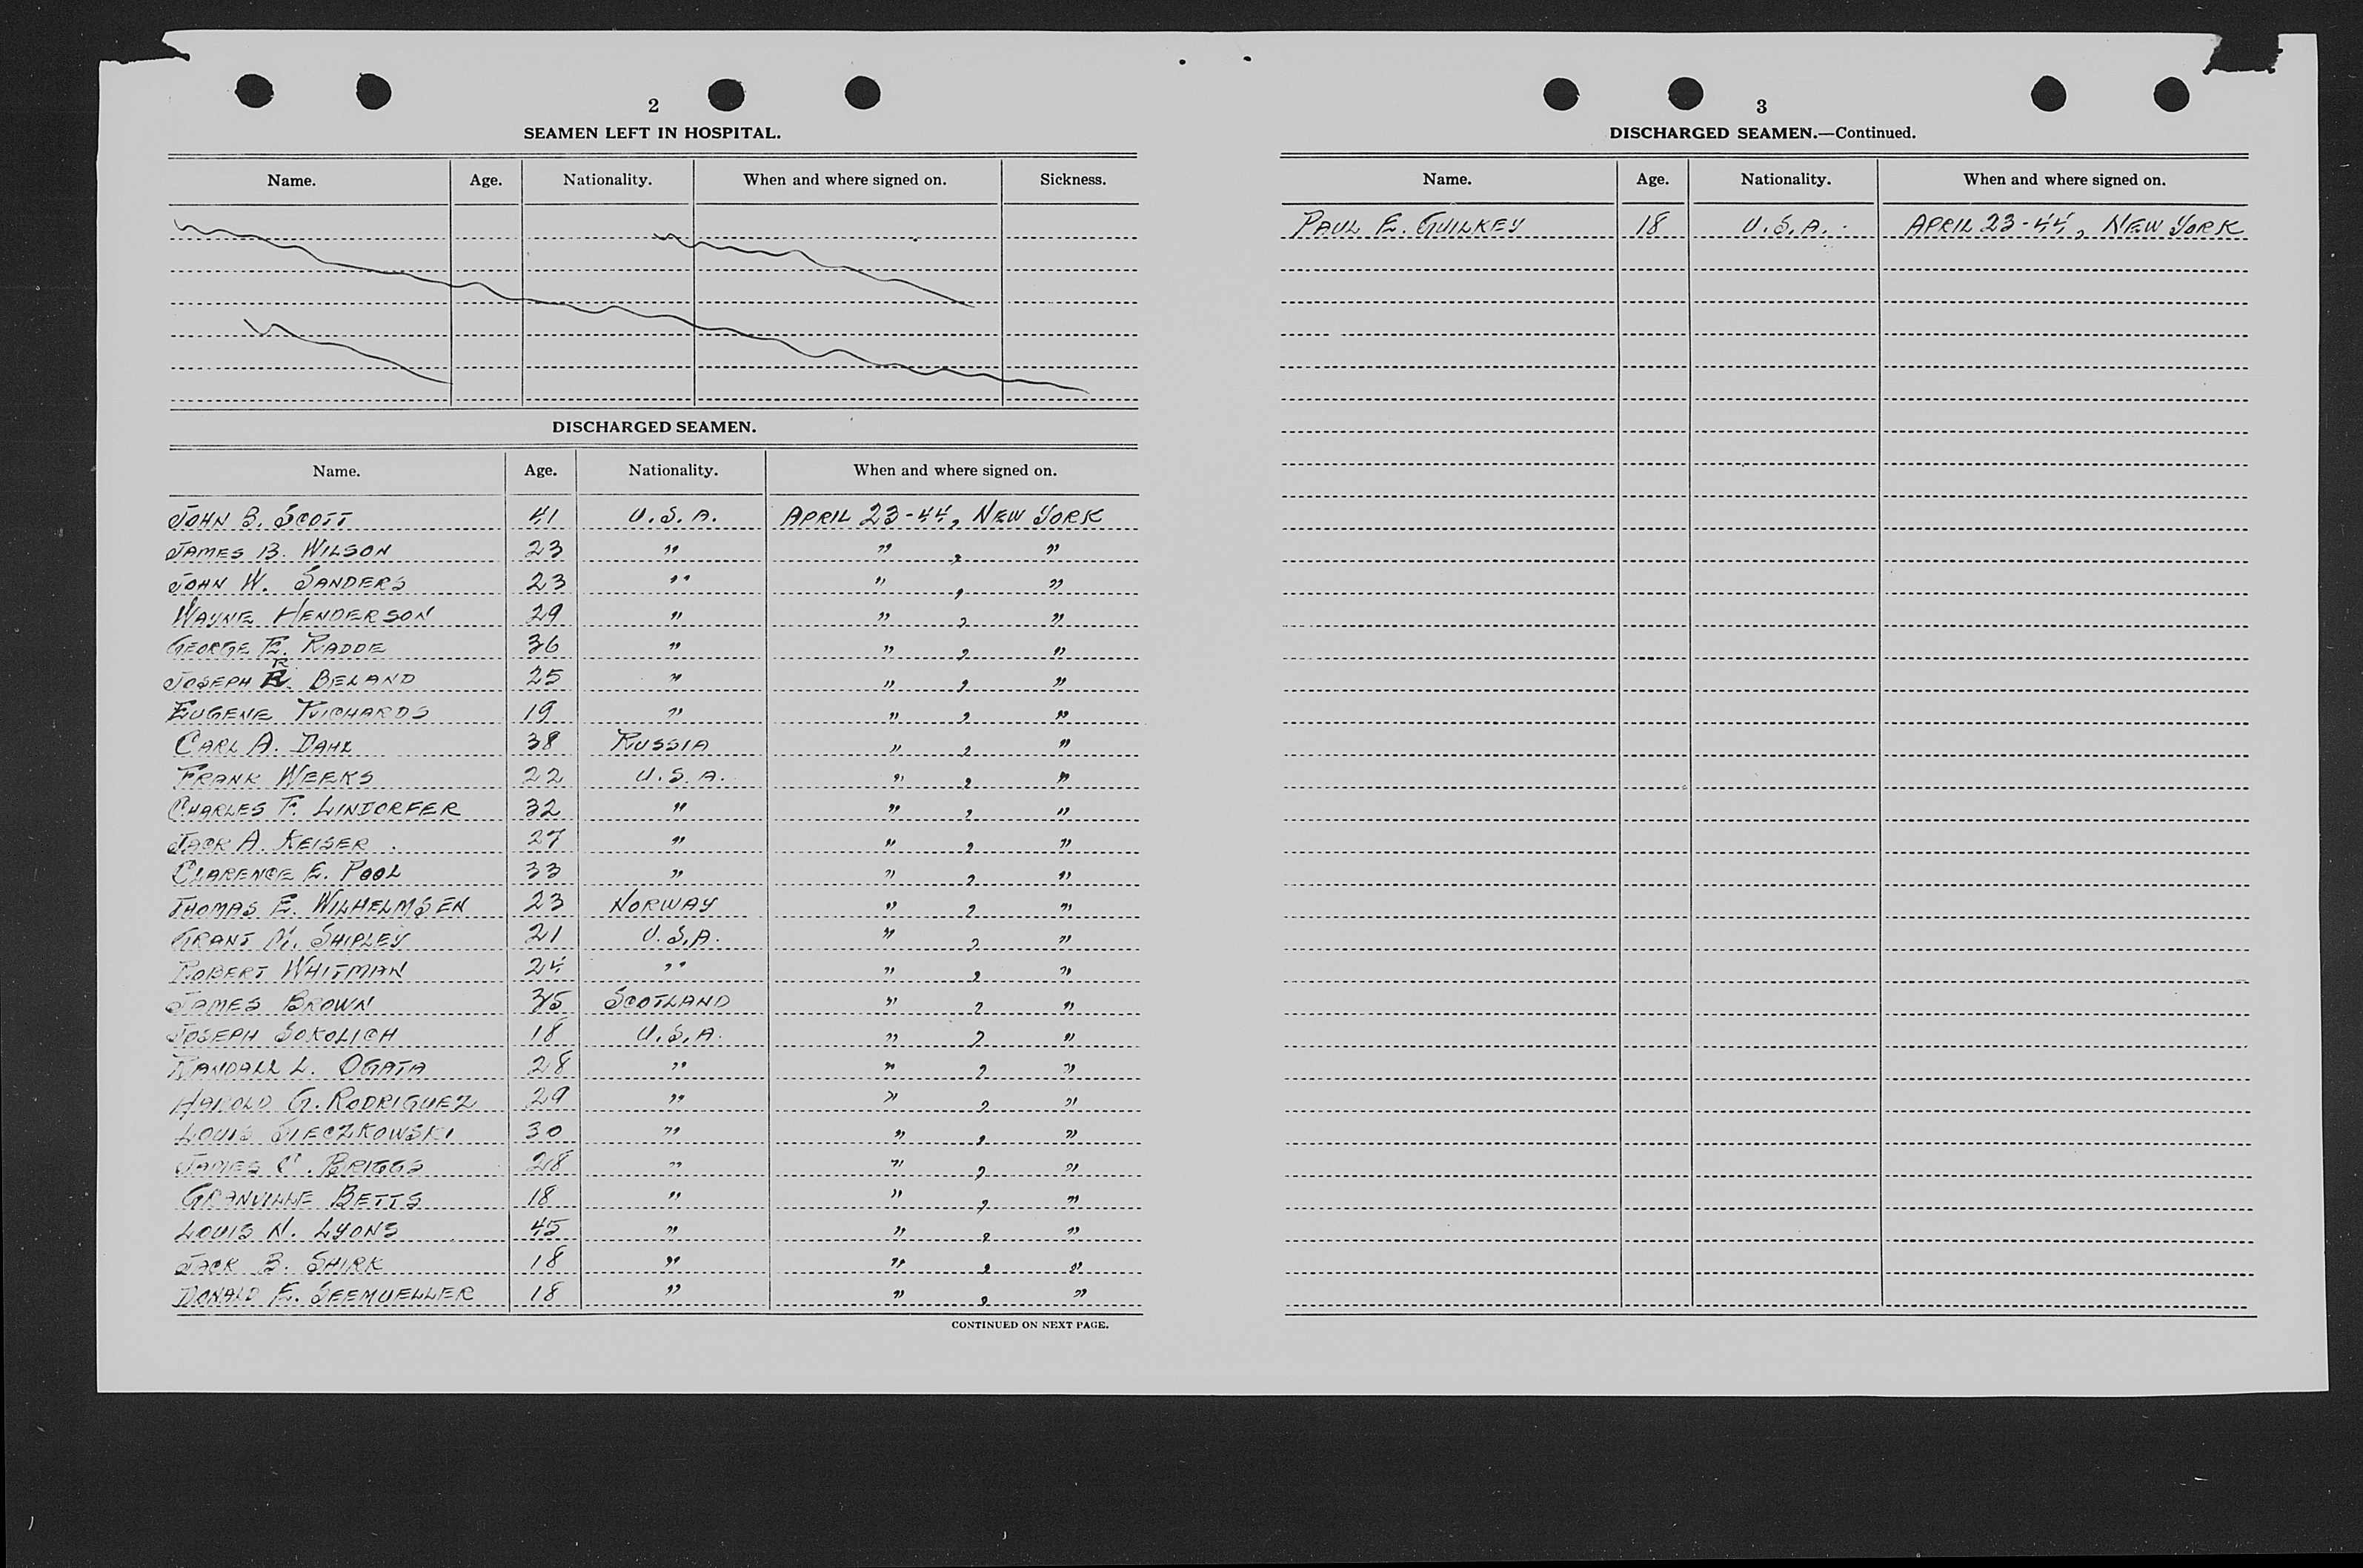 2
SEAMEN LEFT IN HOSPITAL.
Name. Age. Nationality. When and where signed on. Sickness.
DISCHARGED SEAMEN.
Name. Age. Nationality. When and where signed on.
JOHN B. SCOTT 41 U.S.A. APRIL 23-44, NEW YORK
JAMES B. WILSON 23 " " , "
JOHN W. SANDERS 23 " " , "
WAYNE HENDERSON 29 " " , "
GEORGE E. RADDE 36 " " , "
R
JOSEPH R. BELAND 25 " " , "
EUGENE RICHARDS 19 " " , "
CARL A. DAHL 38 RUSSIA " , "
FRANK WEEKS 22 U.S.A. " , "
CHARLES F. LINDORFER 32 " " , "
JACK A. KEISER 27 " " , "
CLARENCE E. POOL 33 " " , "
THOMAS E. WILHELMSEN 23 NORWAY " , "
GRANT SHIPLEY 21 U.S.A. " , "
ROBERT WHITMAN 24 " " , "
JAMES BROWN 35 SCOTLAND " , "
JOSEPH SOKOLICH 18 U.S.A. " , "
RANDALL L. OGATA 28 " " , "
HAROLD G. RODRIGUEZ 29 " " , "
LOUIS SIECZKOWSKI 30 " " , "
JAMES C. BRIGGS 28 " " , "
GRANVILLE BETTS 18 " " , "
LOUIS N. LYONS 45 " " , "
JACK B. SHIRK 18 " " , "
DONALD E. SEEMUELLER 18 " " , "
CONTINUED ON NEXT PAGE.
3
DISCHARGED SEAMEN.—Continued.
Name. Age. Nationality. When and where signed on.
PAUL E. GUILKEY 18 U.S.A. APRIL 23-44, NEW YORK